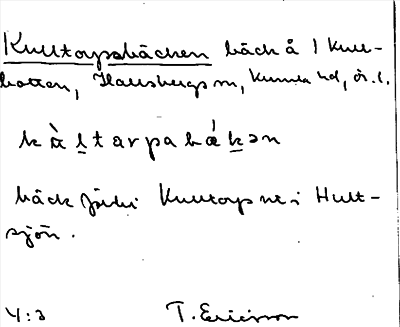 Kulltorpsbäcken bäck å 1 Kull-
botten, Hallsbergs sn, Kumla hd, ör. l.
k ὰ l t a r p a b ά k ə n
bäck från Kulltorps ut i Hult-
sjön.
4:3 T. Ericsson